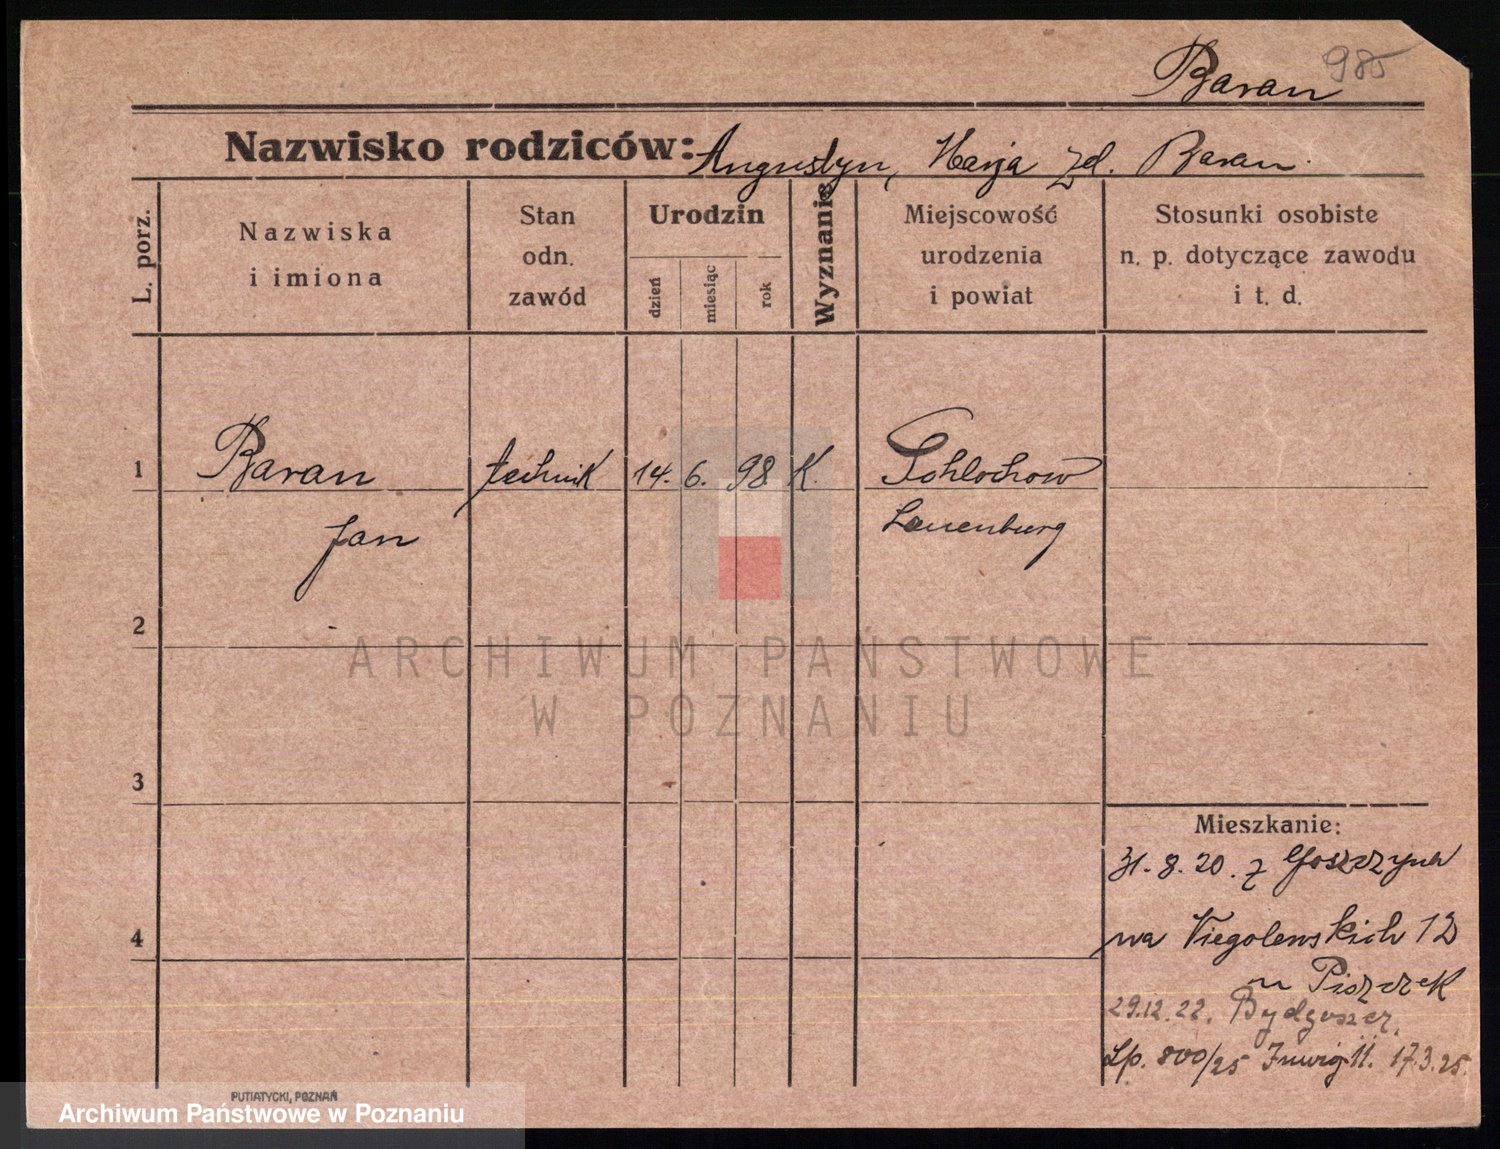 Baran 985
Nazwisko rodziców: Augustyn, Marja zd. Baran
L. porz.
Nazwiska
i imiona
Stan
odn.
zawód
Urodzin
dzień
miesiąc
rok
Wyznanie
Miejscowość
urodzenia
i powiat
Stosunki osobiste
n. p. dotyczące zawodu
i t. d.
1 Baran technik 14. 6. 98 K. Schlochow
Jan Lauenburg
2
3
4
Mieszkanie:
31.8.20. z Goszczyna
na Viegolenskich 12
u Piszczek
29.12.22. Bydgoszcz.
Lp. 800/25 11. 17.3.25.
PUTIATYCKI, POZNAŃ
ARCHIWUM PAŃSTWOWE
W POZNANIU
Archiwum Państwowe w Poznaniu